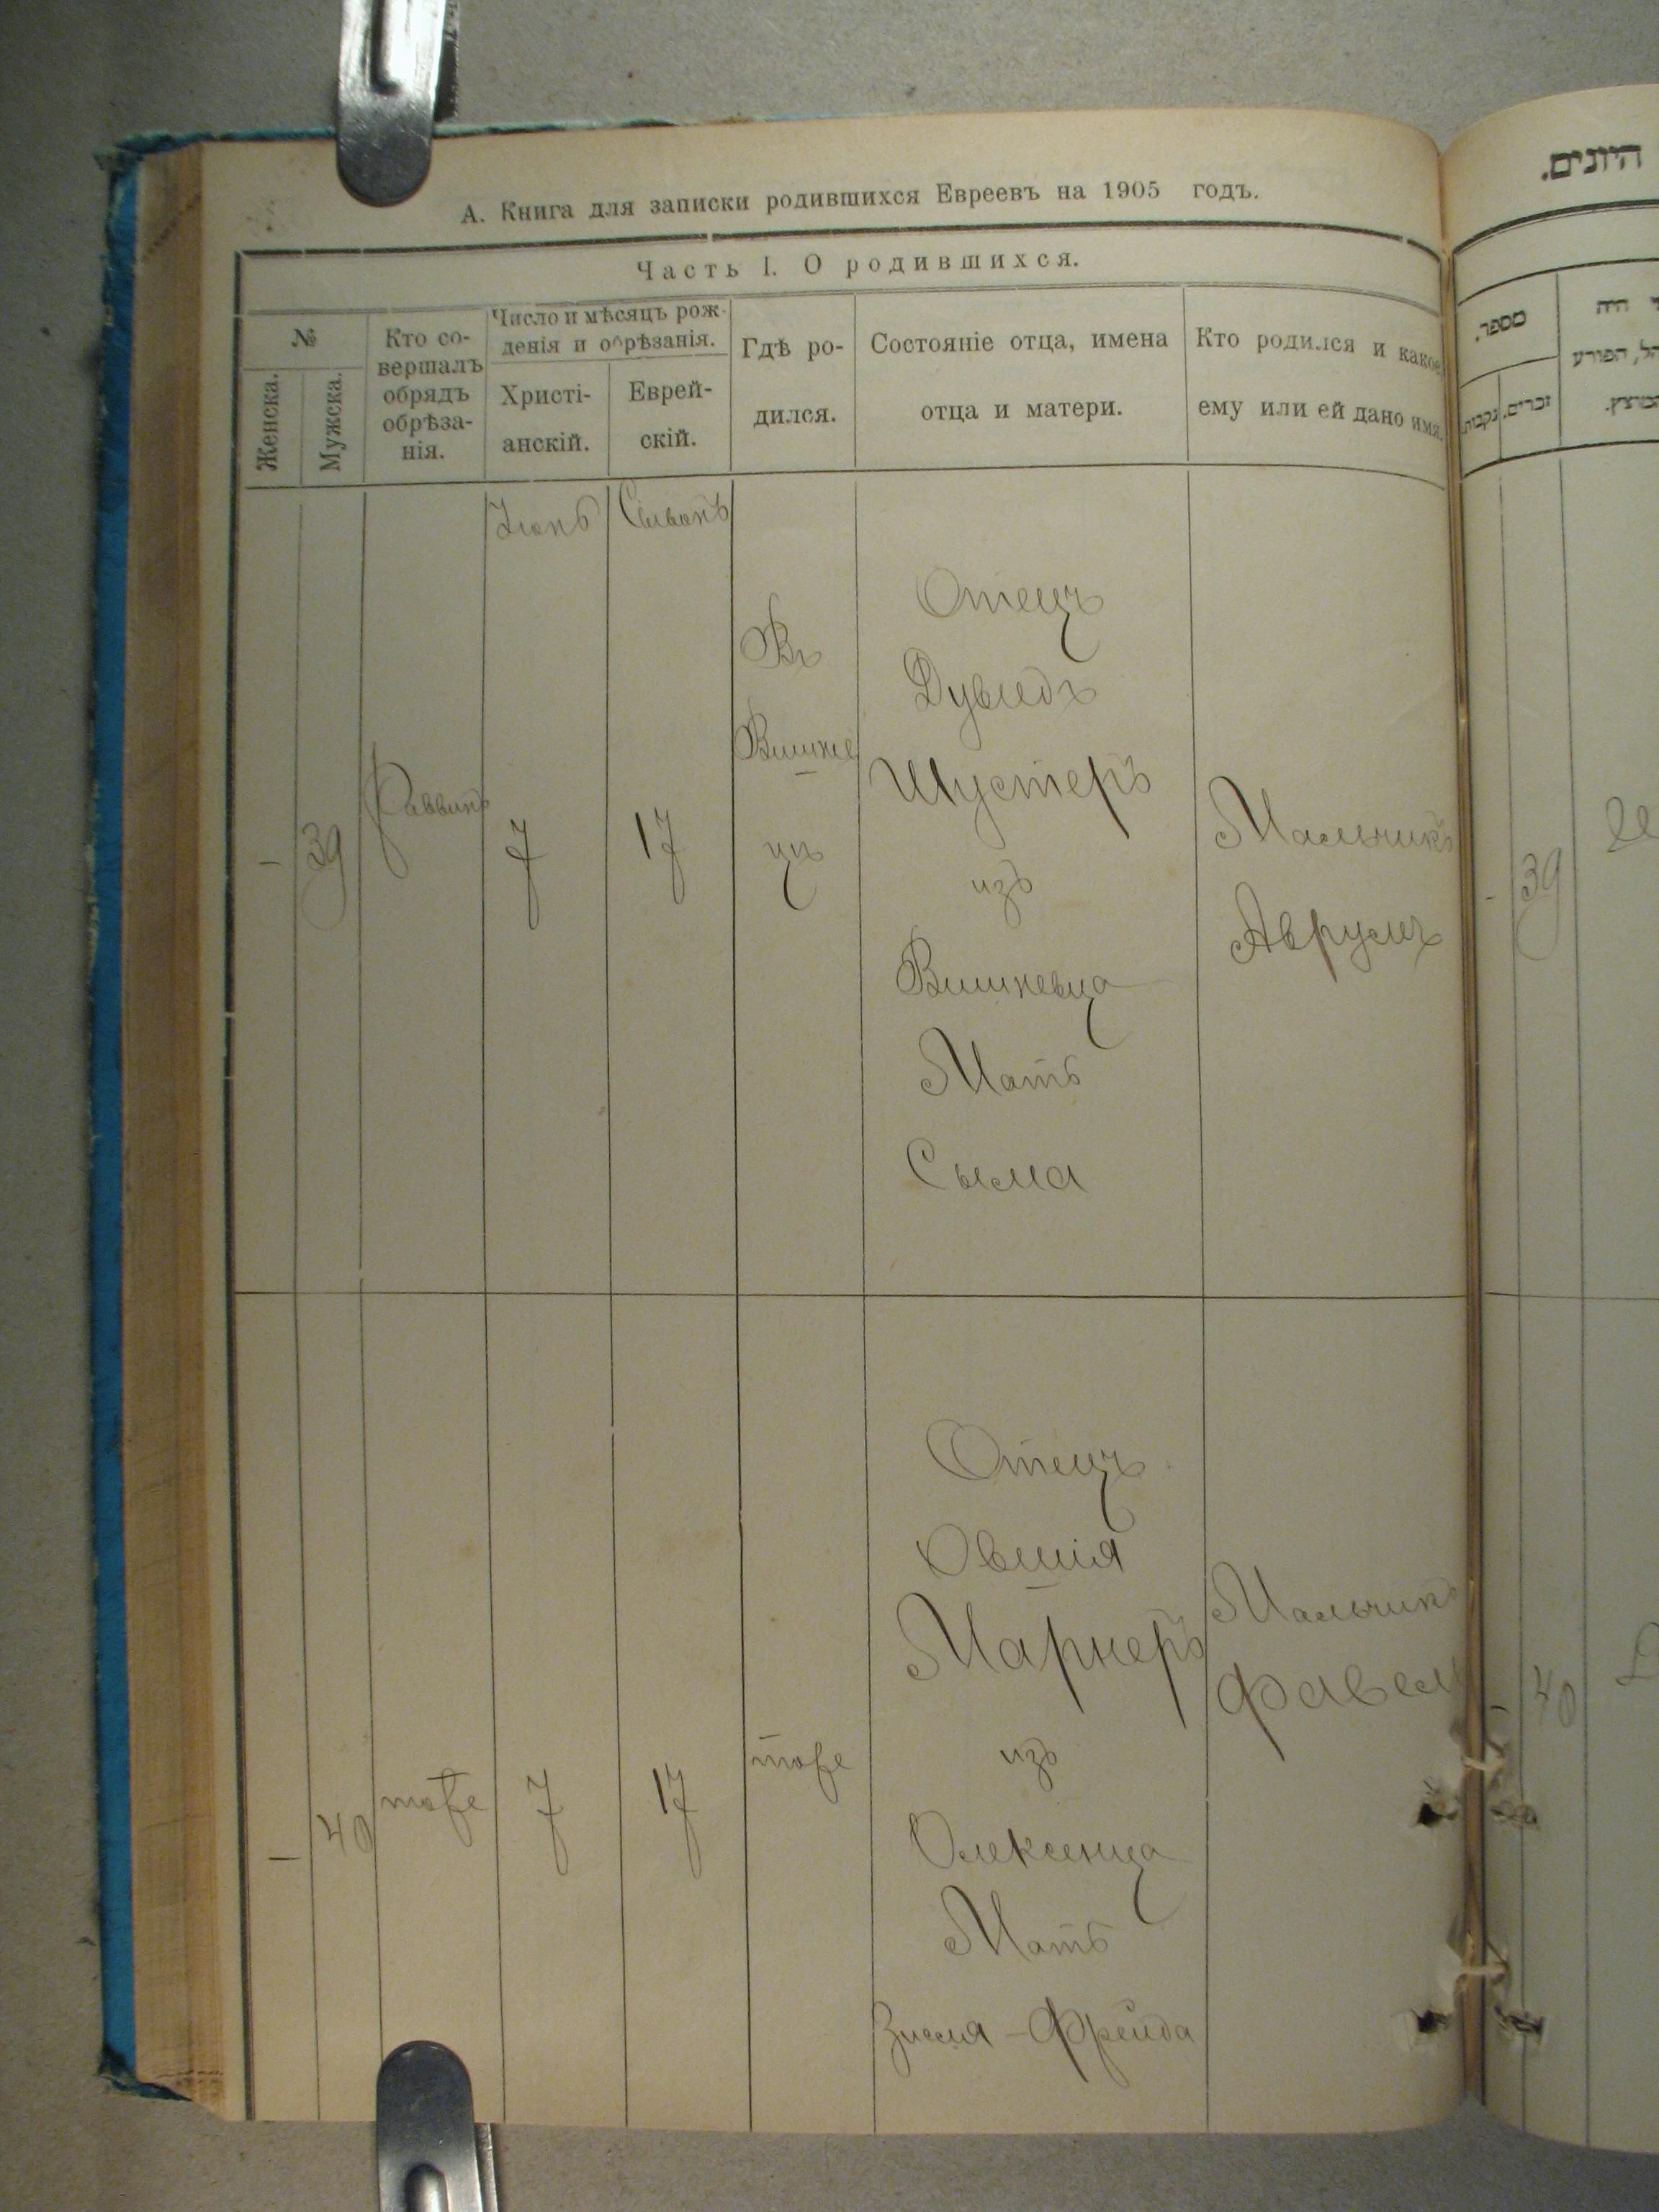 А. Книга для записки родившихся Евреевъ на 1905 годъ.
Часть I. О родившихся.
№
Женска.
Мужска.
Кто со-
вершалъ
обрядъ
обрѣза-
нія.
Число и мѣсяцъ рож-
денія и обрѣзанія.
Христі-
анскій.
Еврей-
скій.
Гдѣ ро-
дился.
Состояніе отца, имена
отца и матери.
Кто родился и какое
ему или ей дано имя.
–
39
Раввинъ
Іюнь
7
Сивонъ
17
Въ
Вишне
цъ
Отецъ
Дувидъ
Шустеръ
изъ
Вишневца
Мать
Сыма
Мальчикъ
Аврумъ
–
40
тоже
7
17
тоже
Отецъ
Овшія
Марнеръ
изъ
Олексинца
Мать
Фрейда
Мальчикъ
היונים.
היה
מספר.
זכרים.
נקבות
הפורע
39
40